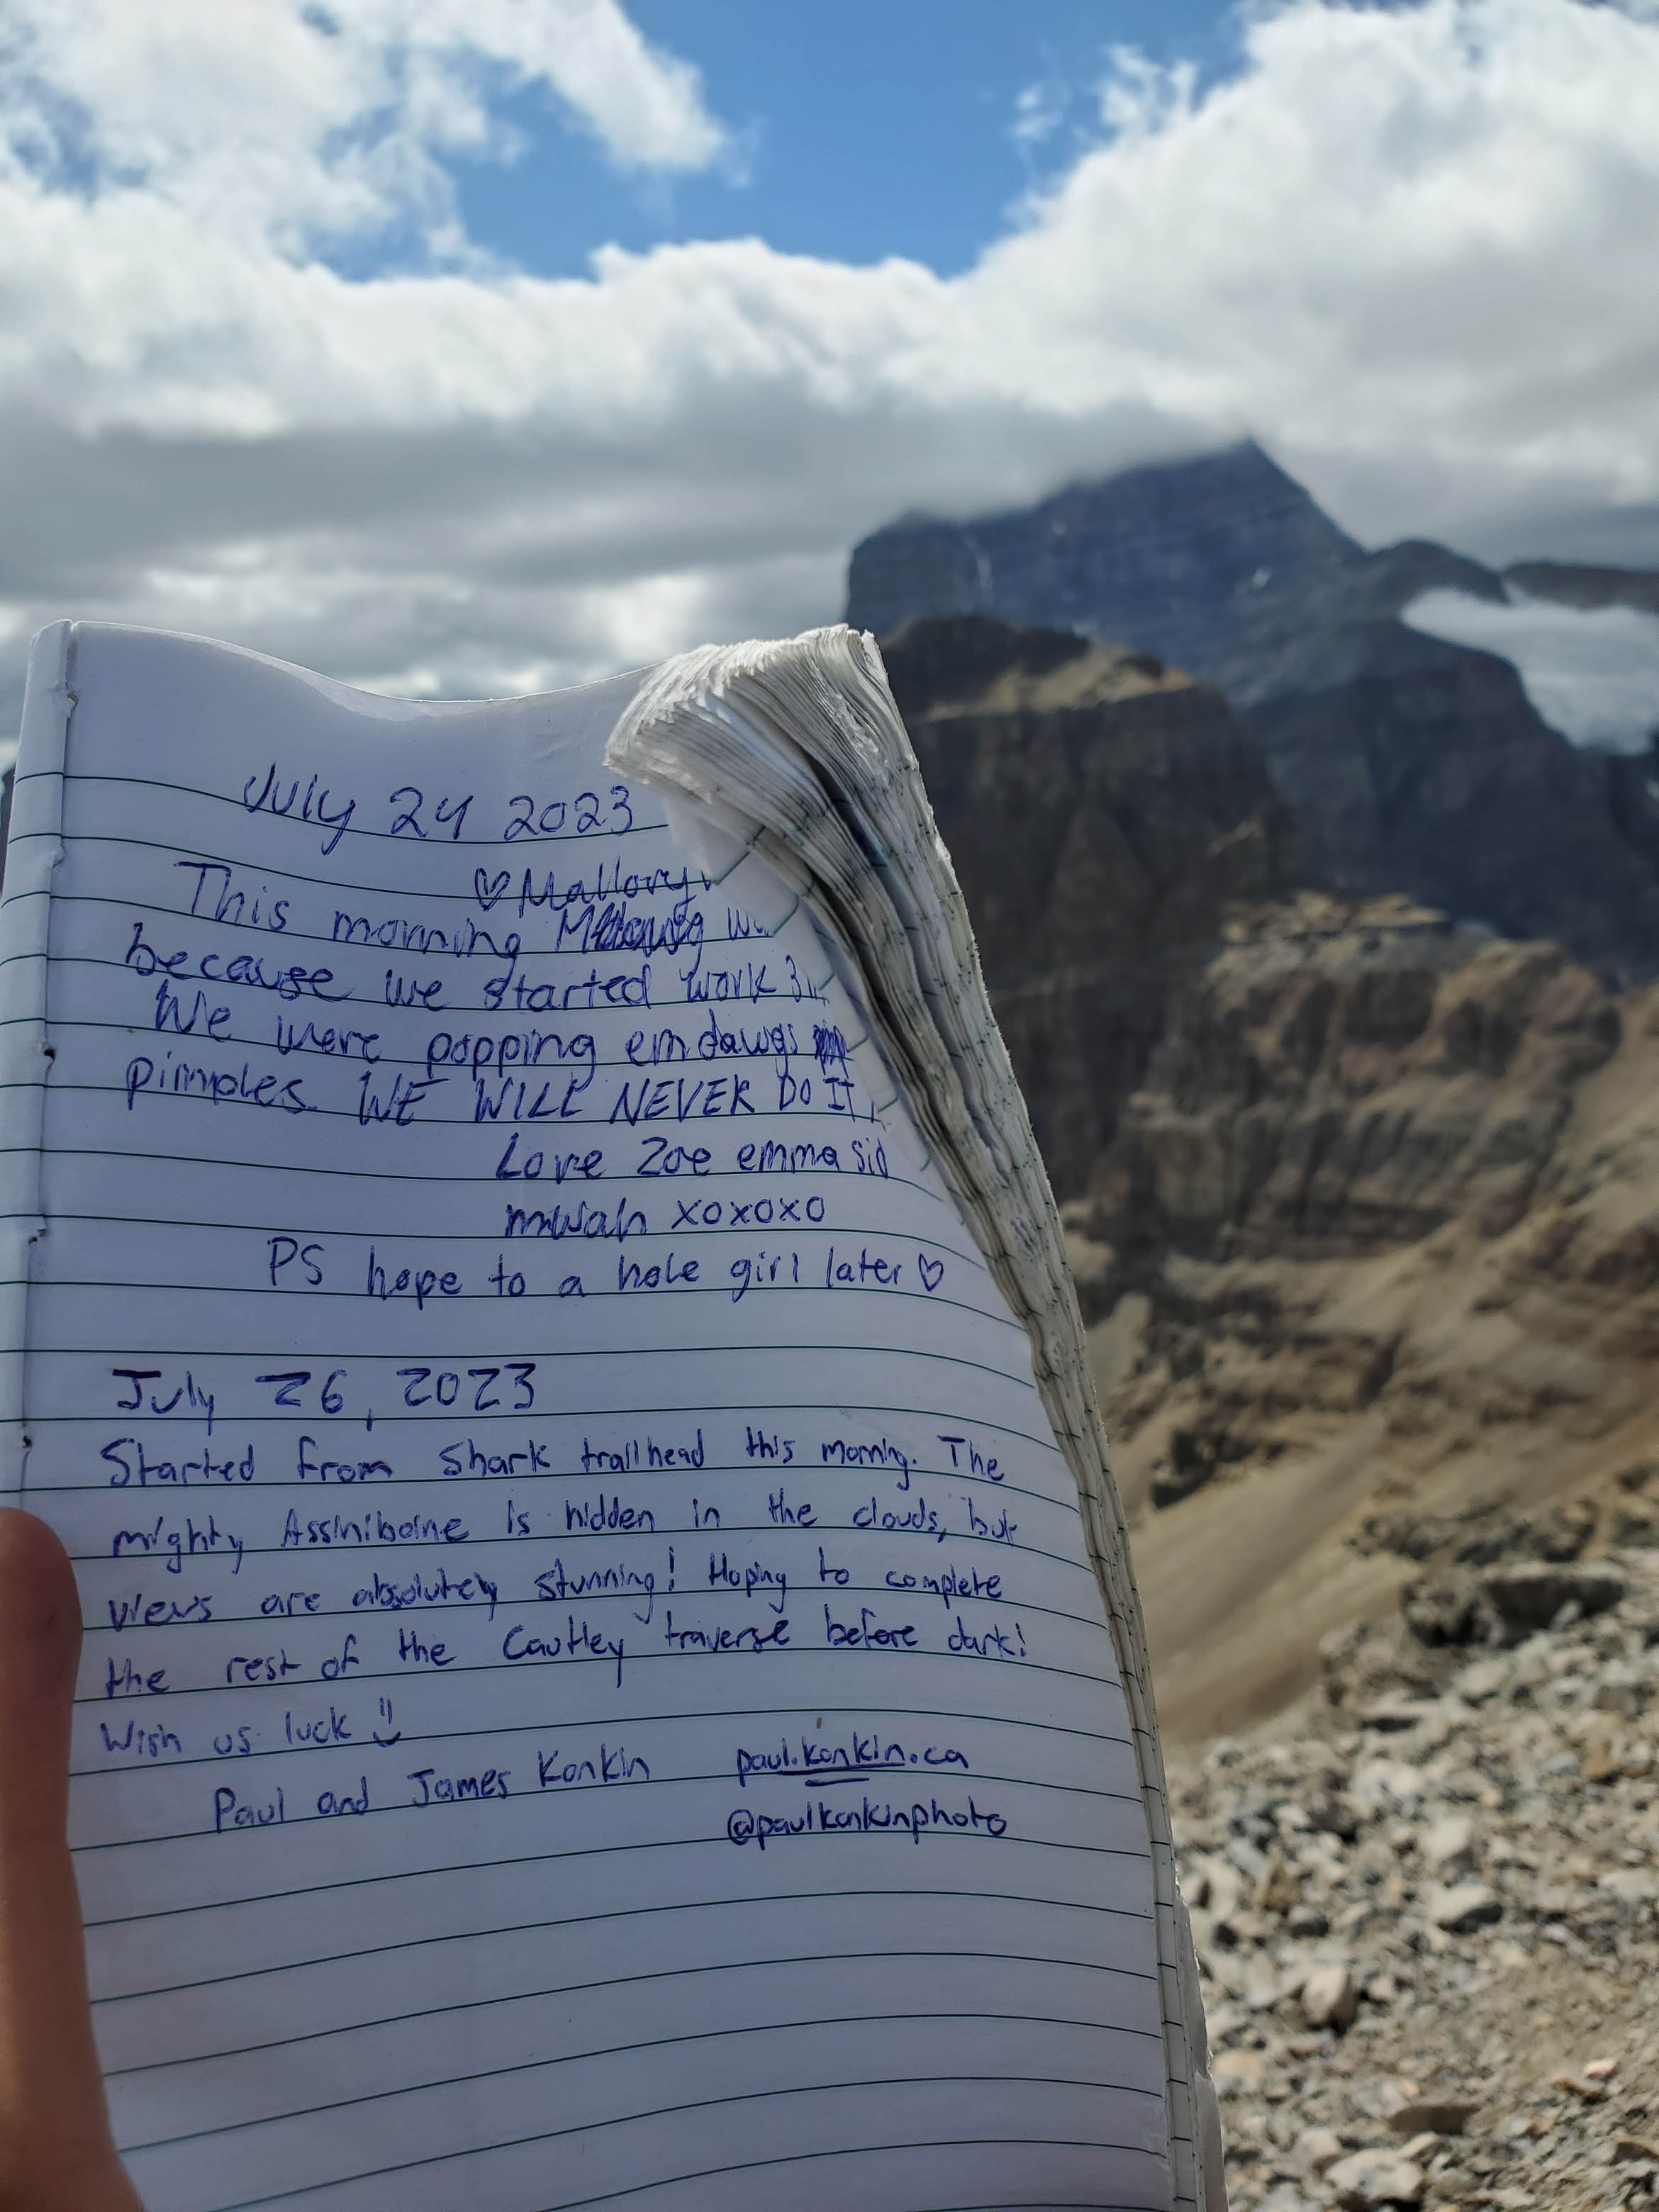 July 24 2023
♡ Mallory
This morning
because we started work
We were popping em dawgs
pimples. WE WILL NEVER DO IT
Love Zoe emma sid
mwah xoxoxo
PS hope to a hole girl later ♡
July 26, 2023
Started from Shark trailhead this morning. The
mighty Assiniboine is hidden in the clouds, but
views are absolutely stunning! Hoping to complete
the rest of the Cautley traverse before dark!
Wish us luck :)
Paul and James Konkin paul.konkin.ca
@paulkonkinphoto